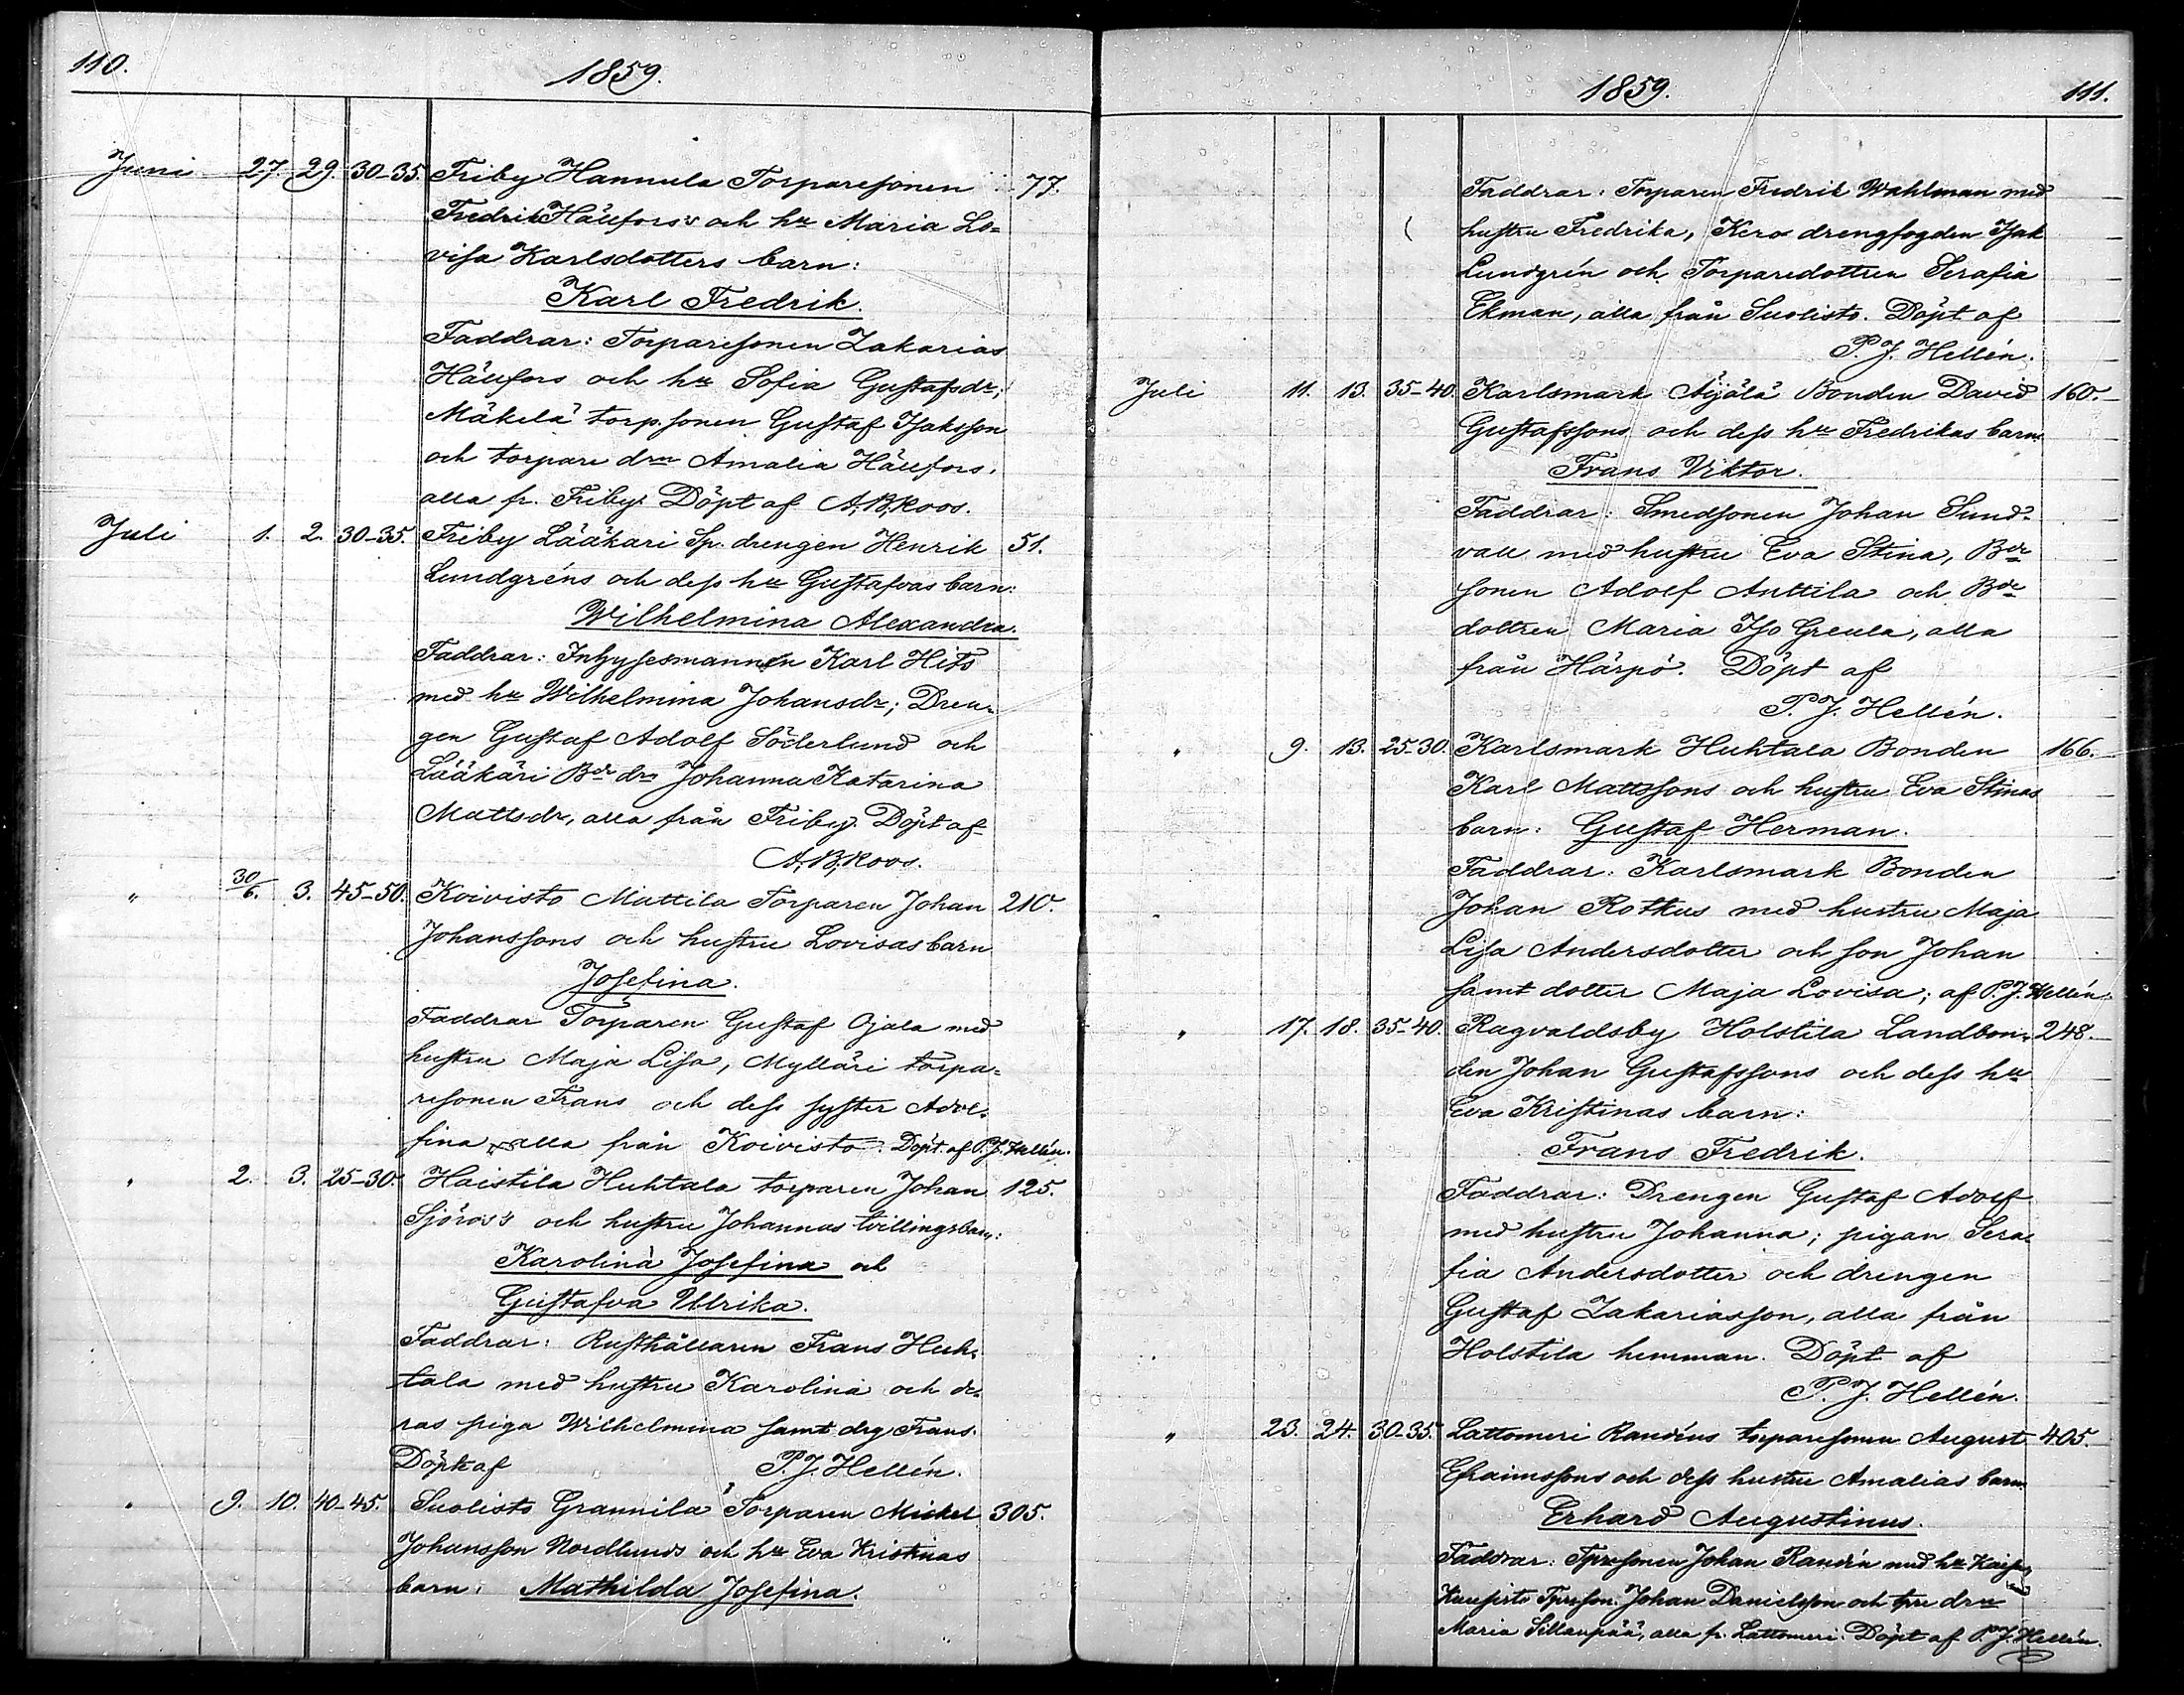 110.
1859.
Juni 27. 29. 30-35. Friby Hannula Torparesonen 77.
Fredrik Hällfors's och hu Maria Lo-
visa Karlsdotters barn:
Karl Fredrik.
Faddrar: Torparesonen Zakarias
Hällfors och hu Sofia Gustafsdr;
Mäkelä torp.sonen Gustaf Isaksson
och torpare drn Amalia Hällfors,
alla fr. Friby. Döpt af A.B.Roos.
Juli 1. 2. 30-35. Friby Lääkäri Sp. drengen Henrik 51.
Lundgréns och dess hu Gustafvas barn:
Wilhelmina Alexandra.
Faddrar: Inhysesmannen Karl Hits
med hu Wilhelmina Johansdr; Dren-
gen Gustaf Adolf Söderlund och
Lääkäri Bde drn Johanna Katarina
Mattsdr, alla från Friby. Döpt af
A.B.Roos.
" 30/6. 3. 45-50. Koivisto Mattila Torparen Johan 210.
Johanssons och hustru Lovisas barn
Josefina.
Faddrar Torparen Gustaf Ojala med
hustru Maja Lisa, Mylläri torpa-
resonen Frans och dess syster Adol-
fina, alla från Koivisto. Döpt af P.J. Hellén.
" 2. 3. 25-30. Haistila Huhtala torparen Johan 125.
Sjöros's och hustru Johannas tvillingsbarn:
Karolina Josefina och
Gustafva Ulrika.
Faddrar: Rusthållaren Frans Huh-
tala med hustru Karolina och de-
ras piga Wilhelmina samt drg Frans.
Döpt af P.J. Hellén.
" 9. 10. 40-45. Suolisto Grannila Torparen Mickel 305.
Johansson Nordlunds och hu Eva Kristinas
barn: Mathilda Josefina.
1859.
111.
Faddrar: Torparen Fredrik Wahlman med
hustru Fredrika, Kero drengfogden Isak
Lundgrén och Torparedottren Serafia
Ekman, alla från Suolisto. Döpt af
P.J. Hellén.
Juli 11. 13. 35-40. Karlsmark Äijälä Bonden David 160.
Gustafssons och dess hu Fredrikas barn.
Frans Viktor.
Faddrar: Smedsonen Johan Sund-
vall med hustru Eva Stina, Bde
sonen Adolf Anttila och Bde
dottren Maria Iso Greula, alla
från Härpö. Döpt af
P.J. Hellén.
" 9. 13. 25-30. Karlsmark Huhtala Bonden 166.
Karl Mattssons och hustru Eva Stinas
barn: Gustaf Herman.
Faddrar: Karlsmark Bonden
Johan Rotkus med hustru Maja
Lisa Andersdotter och son Johan
samt dotter Maja Lovisa; af P.J. Hellén.
" 17. 18. 35-40. Ragvaldsby Holstila Landbon- 248.
den Johan Gustafssons och dess hu
Eva Kristinas barn:
Frans Fredrik.
Faddrar: Drengen Gustaf Adolf
med hustru Johanna; pigan Sera-
fia Andersdotter och drengen
Gustaf Zakariasson, alla från
Holstila hemman. Döpt af
P.J. Hellén.
" 23. 24. 30-35. Lattomeri Randéns torparesonen August 405.
Efraimssons och dess hustru Amalias barn
Erhard Augustinus.
Faddrar: Tpresonen Johan Randén med hu Kaisa,
Kuusisto Tpreson Johan Danielsson och tpre drn
Maria Sillanpää, alla fr. Lattomeri. Döpt af P.J. Hellén.